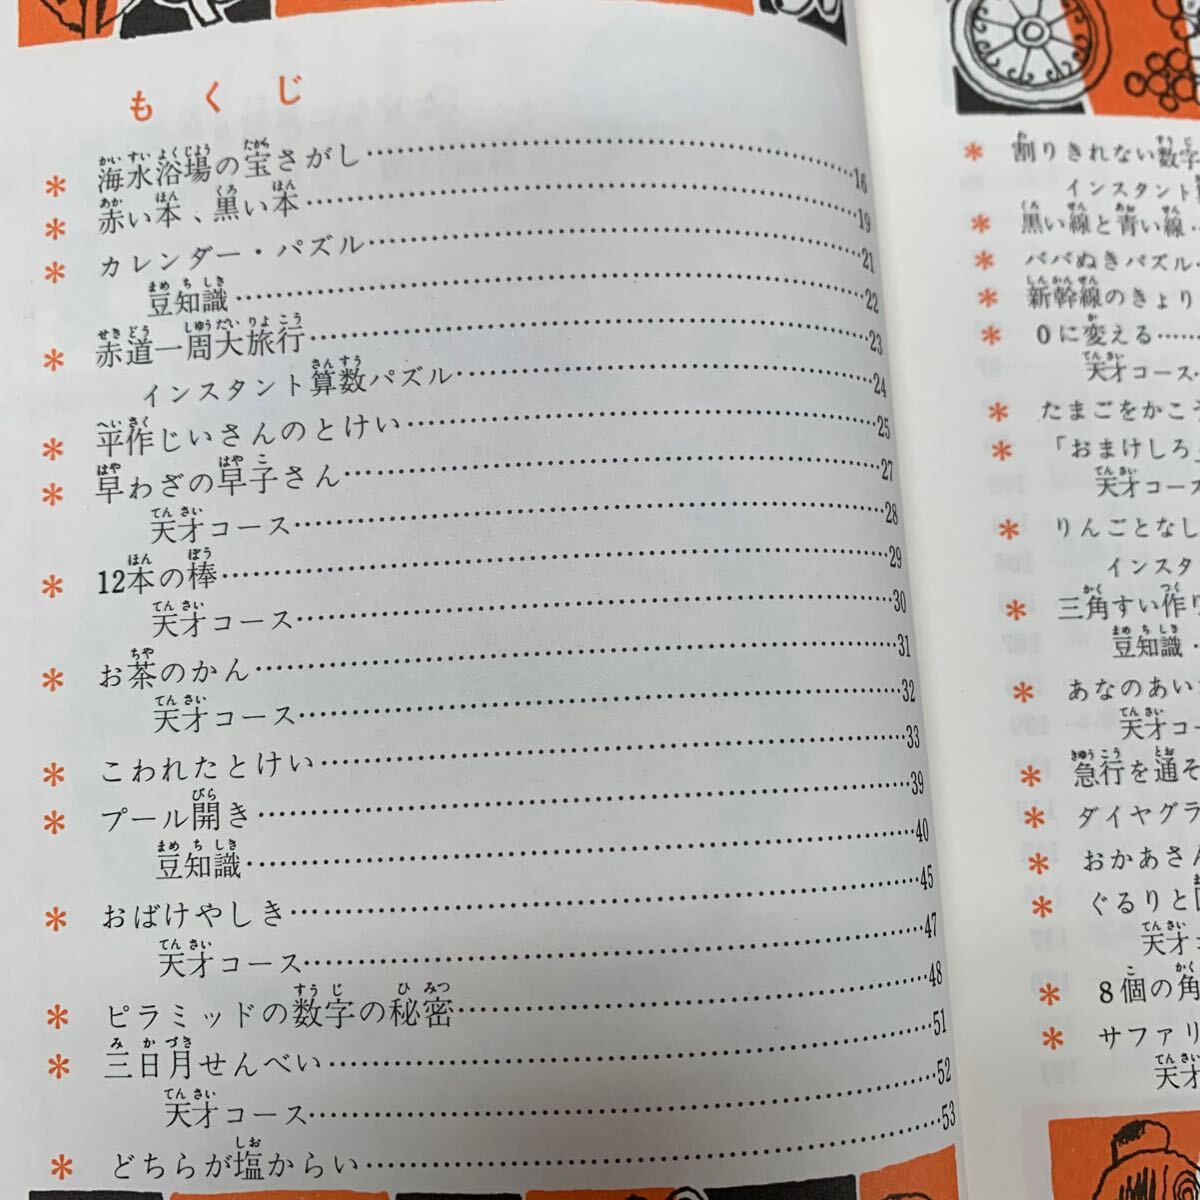 もくじ
* 海水浴場の宝さがし……16
* 赤い本、黒い本……19
* カレンダー・パズル……21
豆知識……22
* 赤道一周大旅行……23
インスタント算数パズル……24
* 平作じいさんのとけい……25
* 早わざの早子さん……27
天才コース……28
* 12本の棒……29
天才コース……30
* お茶のかん……31
天才コース……32
* こわれたとけい……33
* プール開き……39
豆知識……40
* おばけやしき……45
天才コース……47
* ピラミッドの数字の秘密……48
* 三日月せんべい……51
天才コース……52
* どちらが塩からい……53
* 割りきれない数字
インスタント
* 黒い線と青い線…
* ババぬきパズル…
* 新幹線のきょり
* 0に変える……
天才コース…
* たまごをかこ
* 「おまけしろ」
天才コース
* りんごとなし
インスタ
* 三角すい作り
豆知識…
* あなのあい
天才コー
* 急行を通そ
* ダイヤグラ
* おかあさん
* ぐるりと
天才コ
* 8個の角
* サファリ
天才